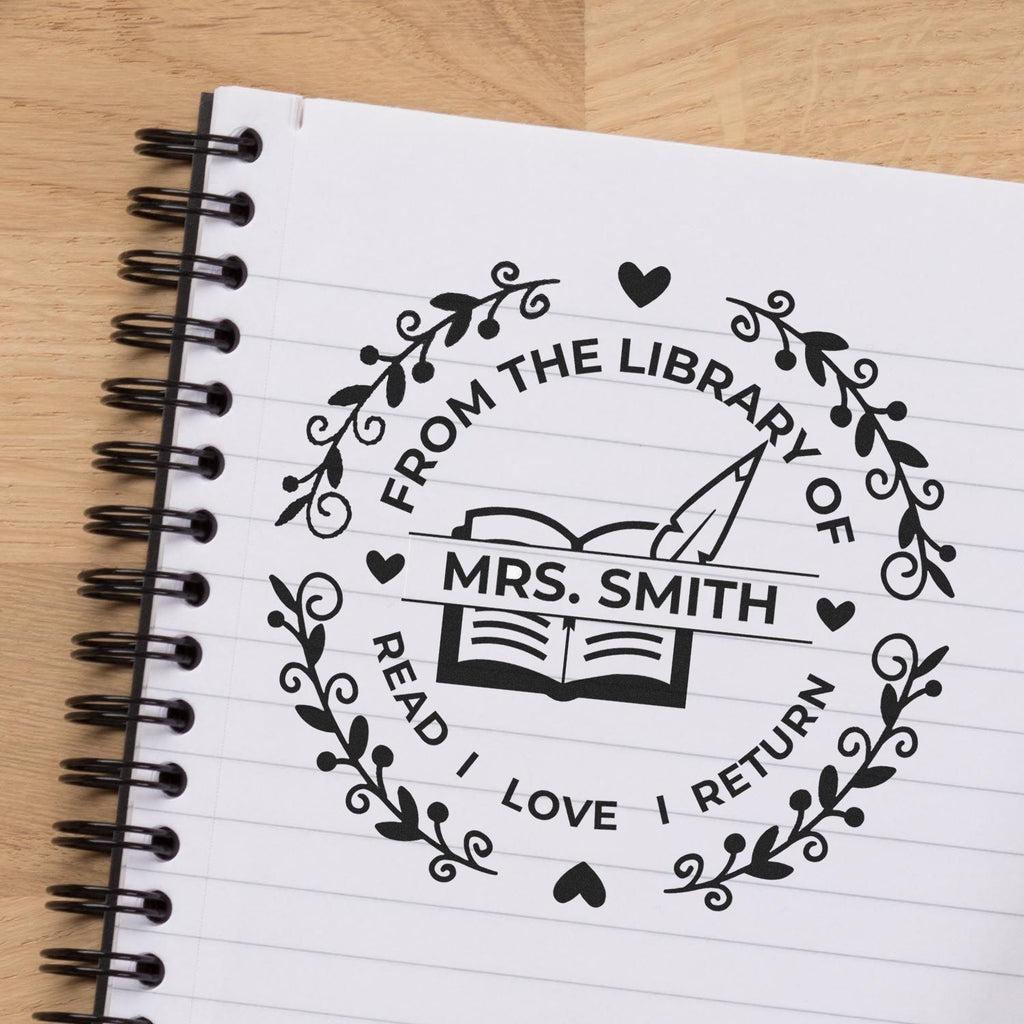 FROM THE LIBRARY OF
MRS. SMITH
READ I LOVE I RETURN